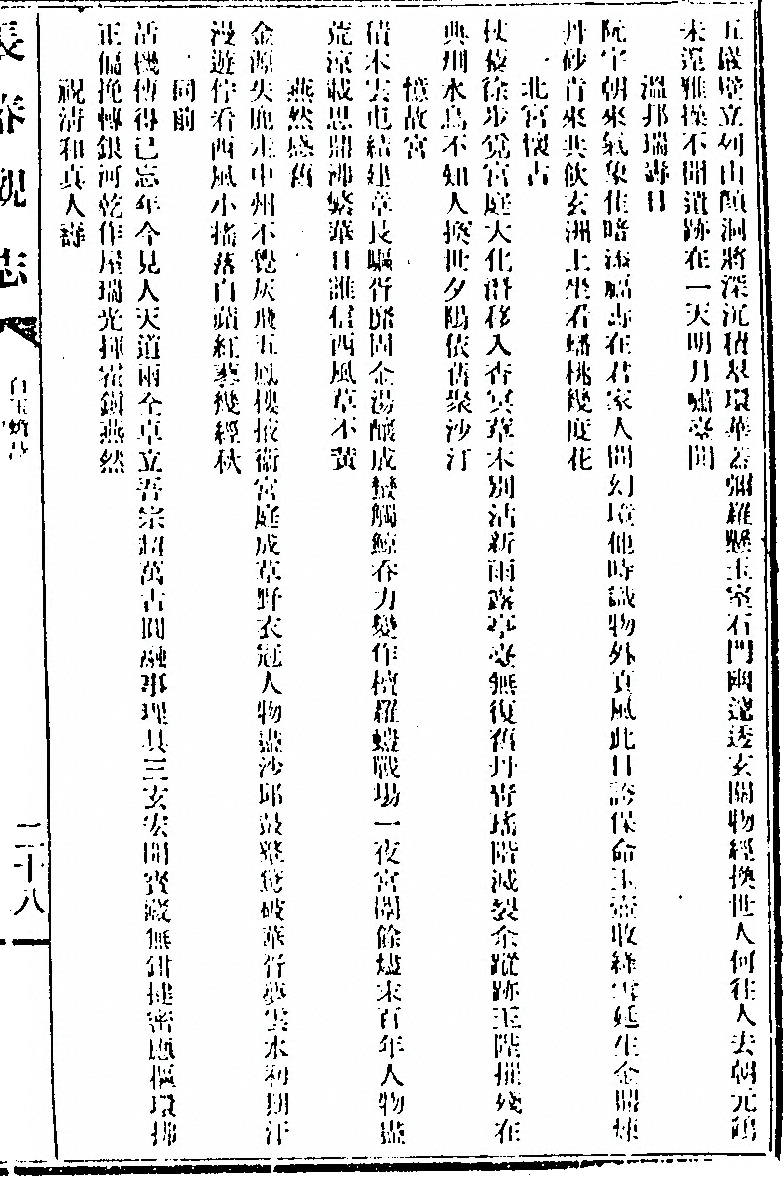 五嚴壁立列山顏洞將深沉積翠環華蓋彌羅懸玉室石門幽邃透玄關物經換世人何往人去朝元鶴
未還雅操不聞遺跡在一天明月嘯臺閒
溫邦瑞壽日
阮宇朝來氣象佳暗添福壽在君家人間幻境他時識物外真風此日誇保命玉壺收絳雪延生金鼎煉
丹砂肯來共飲玄洲上坐看蟠桃幾度花
北宮懷古
杖藜徐步覽宮庭大化潛移入杳冥草木別沾新雨露亭臺無復舊丹青瑤階減裂余蹤跡玉陛摧殘在
典刑水鳥不知人換世夕陽依舊聚沙汀
憶故宮
積木雲屯結建章長驅胥靡固金湯釀成蠻觸鯨吞力變作檀羅蟻戰場一夜宮闈餘燼末百年人物盡
荒涼載思鼎沸繁華日誰信西風草不黃
燕然感舊
金源失鹿走中州不覺灰飛五鳳樓掖衛宮庭成草野衣冠人物盡沙邱鼓鼙驚破華胥夢雲水利期汗
漫遊佇看西風小搖落白蘋紅蓼幾經秋
同前
活機傳得已忘年今見人天道兩全卓立吾宗超萬古圓融事理具三玄宏開寶藏無鉗揵密應樞環拂
正偏挽轉銀河乾作屋瑞光揮霍鎮燕然
祝清和真人壽
長春觀志
二十八